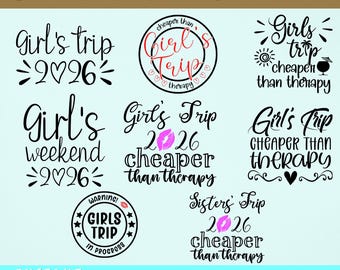 Girl's trip
2026
cheaper than
Girl's
Trip
therapy
Girls
trip
cheaper
than therapy
Girl's
weekend
2026
Girl's Trip
2026
cheaper
than therapy
Girl's Trip
CHEAPER THAN
therapy
WARNING!
GIRLS
TRIP
IN PROGRESS
Sisters' Trip
2026
cheaper
than therapy